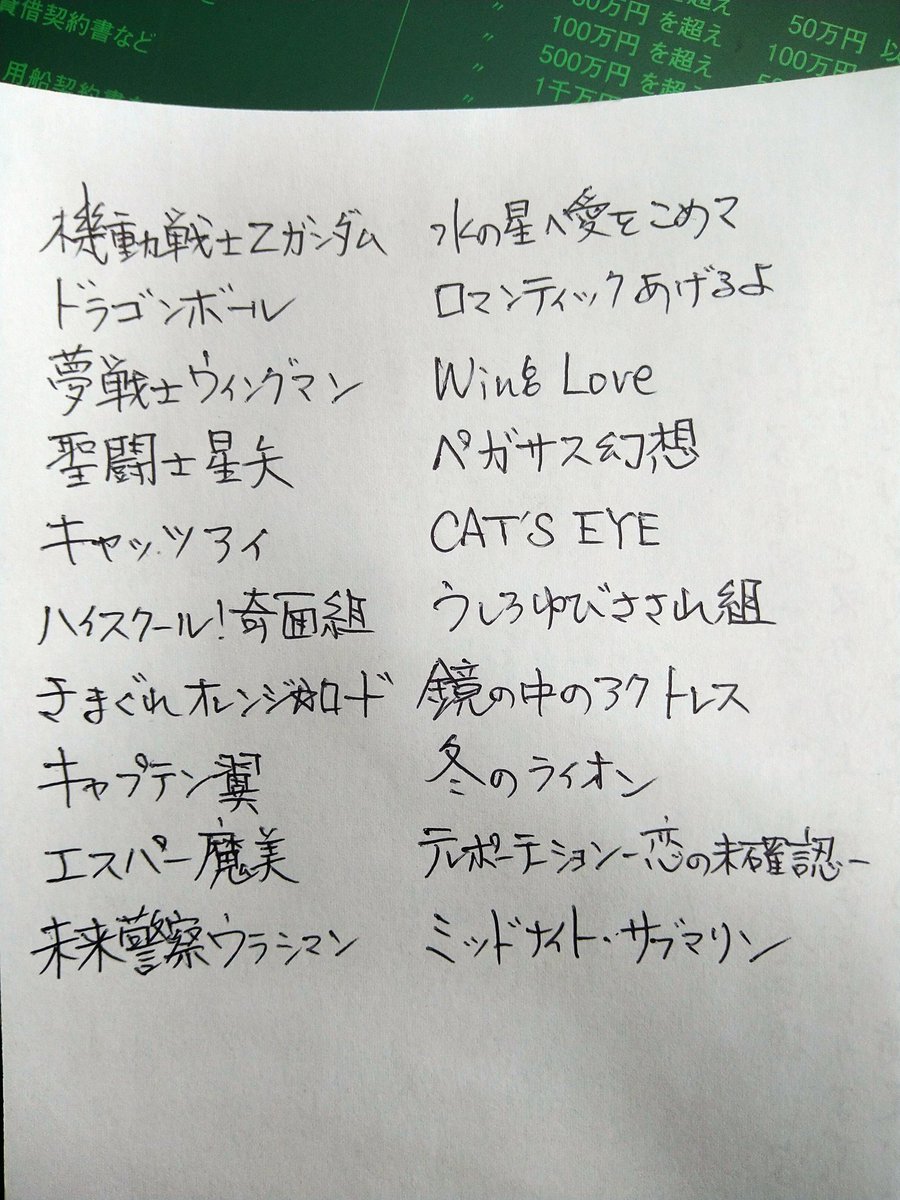 賃借契約書など 〃 50万円 を超え 50万円 以
〃 100万円 を超え 100万円
用船契約書 〃 500万円 を超え
1千万円
機動戦士Zガンダム 水の星へ愛をこめて
ドラゴンボール ロマンティックあげるよ
夢戦士ウィングマン Wing Love
聖闘士星矢 ペガサス幻想
キャッツアイ CAT'S EYE
ハイスクール!奇面組 うしろゆびさされ組
きまぐれオレンジ☆ロード 鏡の中のアクトレス
キャプテン翼 冬のライオン
エスパー魔美 テレポーテーション-恋の未確認-
未来警察ウラシマン ミッドナイト・サブマリン